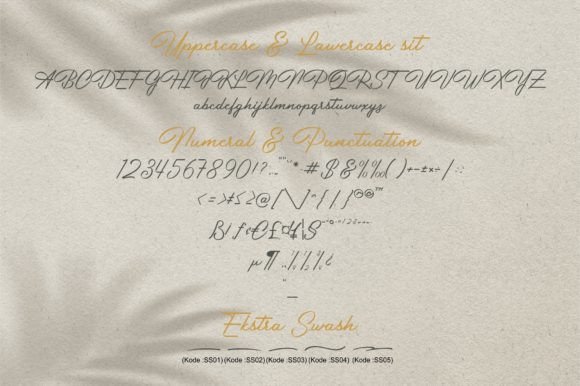 Uppercase & Lawercase sit
ABCDEFGHIJKLMNOPQRSTUVWXYZ
abcdefghijklmnopqrstuvwxyz
Numeral & Punctuation
1234567890!?
#$&%‰()+-±×÷/
<=>≠≤≥@[\]^{|}©®™
µ¶
Ekstra Swash
(Kode :SS01) (Kode :SS02) (Kode :SS03) (Kode :SS04) (Kode :SS05)